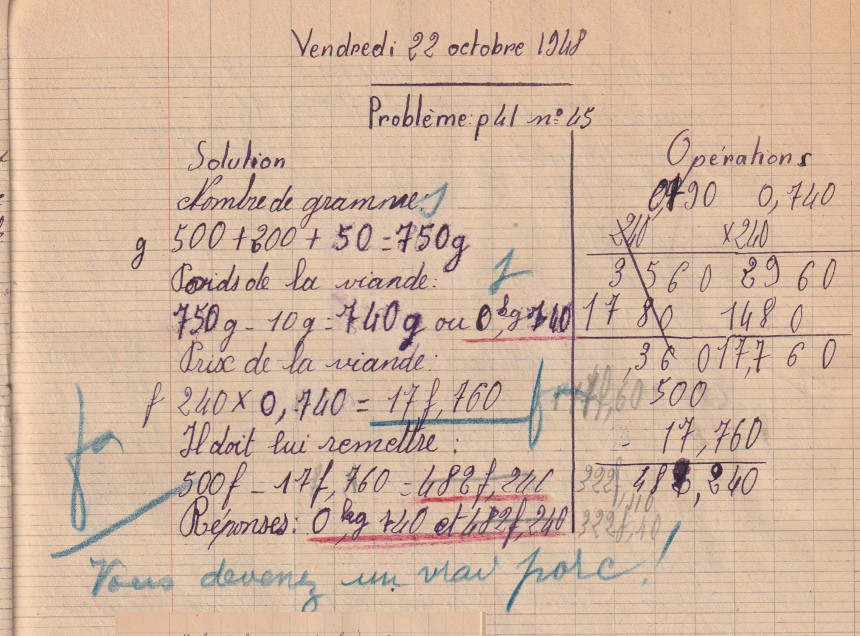 Vendredi 22 octobre 1948
Problème: p41 n° 45
Solution
Nombre de grammes
g 500 + 200 + 50 = 750g
Poids de la viande:
750g - 10g = 740g ou 0kg,740
Prix de la viande:
f 240 × 0,740 = 17f,760
Il doit lui remettre :
500f - 17f,760 = 482f,240
Réponses: 0kg,740 et 482f,240
Opérations
0,740
×240
3 560 29 60
17 80 148 0
,36 0 17,7 60
500
- 17,760
482,240
322f,
322f,10
fa
Vous devenez un vrai porc!